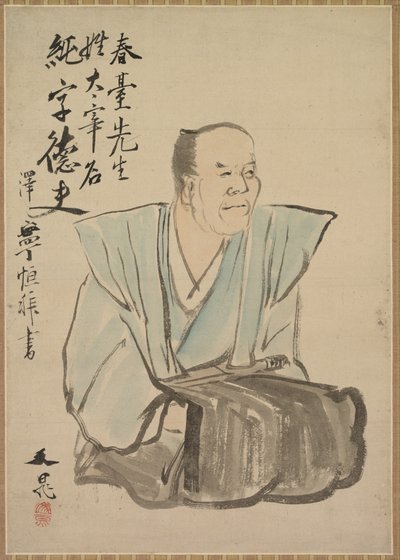 春臺先生
姓太宰名
純字德夫
澤 恒 書
文晁